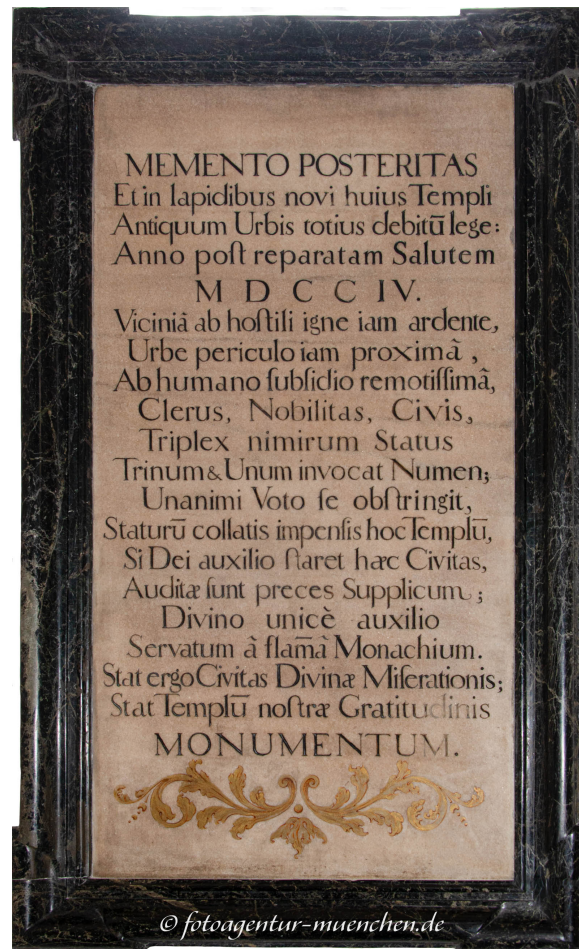 MEMENTO POSTERITAS
Et in lapidibus novi huius Templi
Antiquum Urbis totius debitū lege:
Anno poſt reparatam Salutem
M D C C IV.
Viciniâ ab hoſtili igne iam ardente,
Urbe periculo iam proximâ ,
Ab humano ſubſidio remotiſſimâ,
Clerus, Nobilitas, Civis,
Triplex nimirum Status
Trinum & Unum invocat Numen;
Unanimi Voto ſe obſtringit,
Staturū collatis impenſis hoc Templū,
Si Dei auxilio ſtaret hæc Civitas,
Auditæ ſunt preces Supplicum ;
Divino unicè auxilio
Servatum â flam̄â Monachium.
Stat ergo Civitas Divinæ Miſerationis;
Stat Templū noſtræ Gratitudinis
MONUMENTUM.
© fotoagentur-muenchen.de